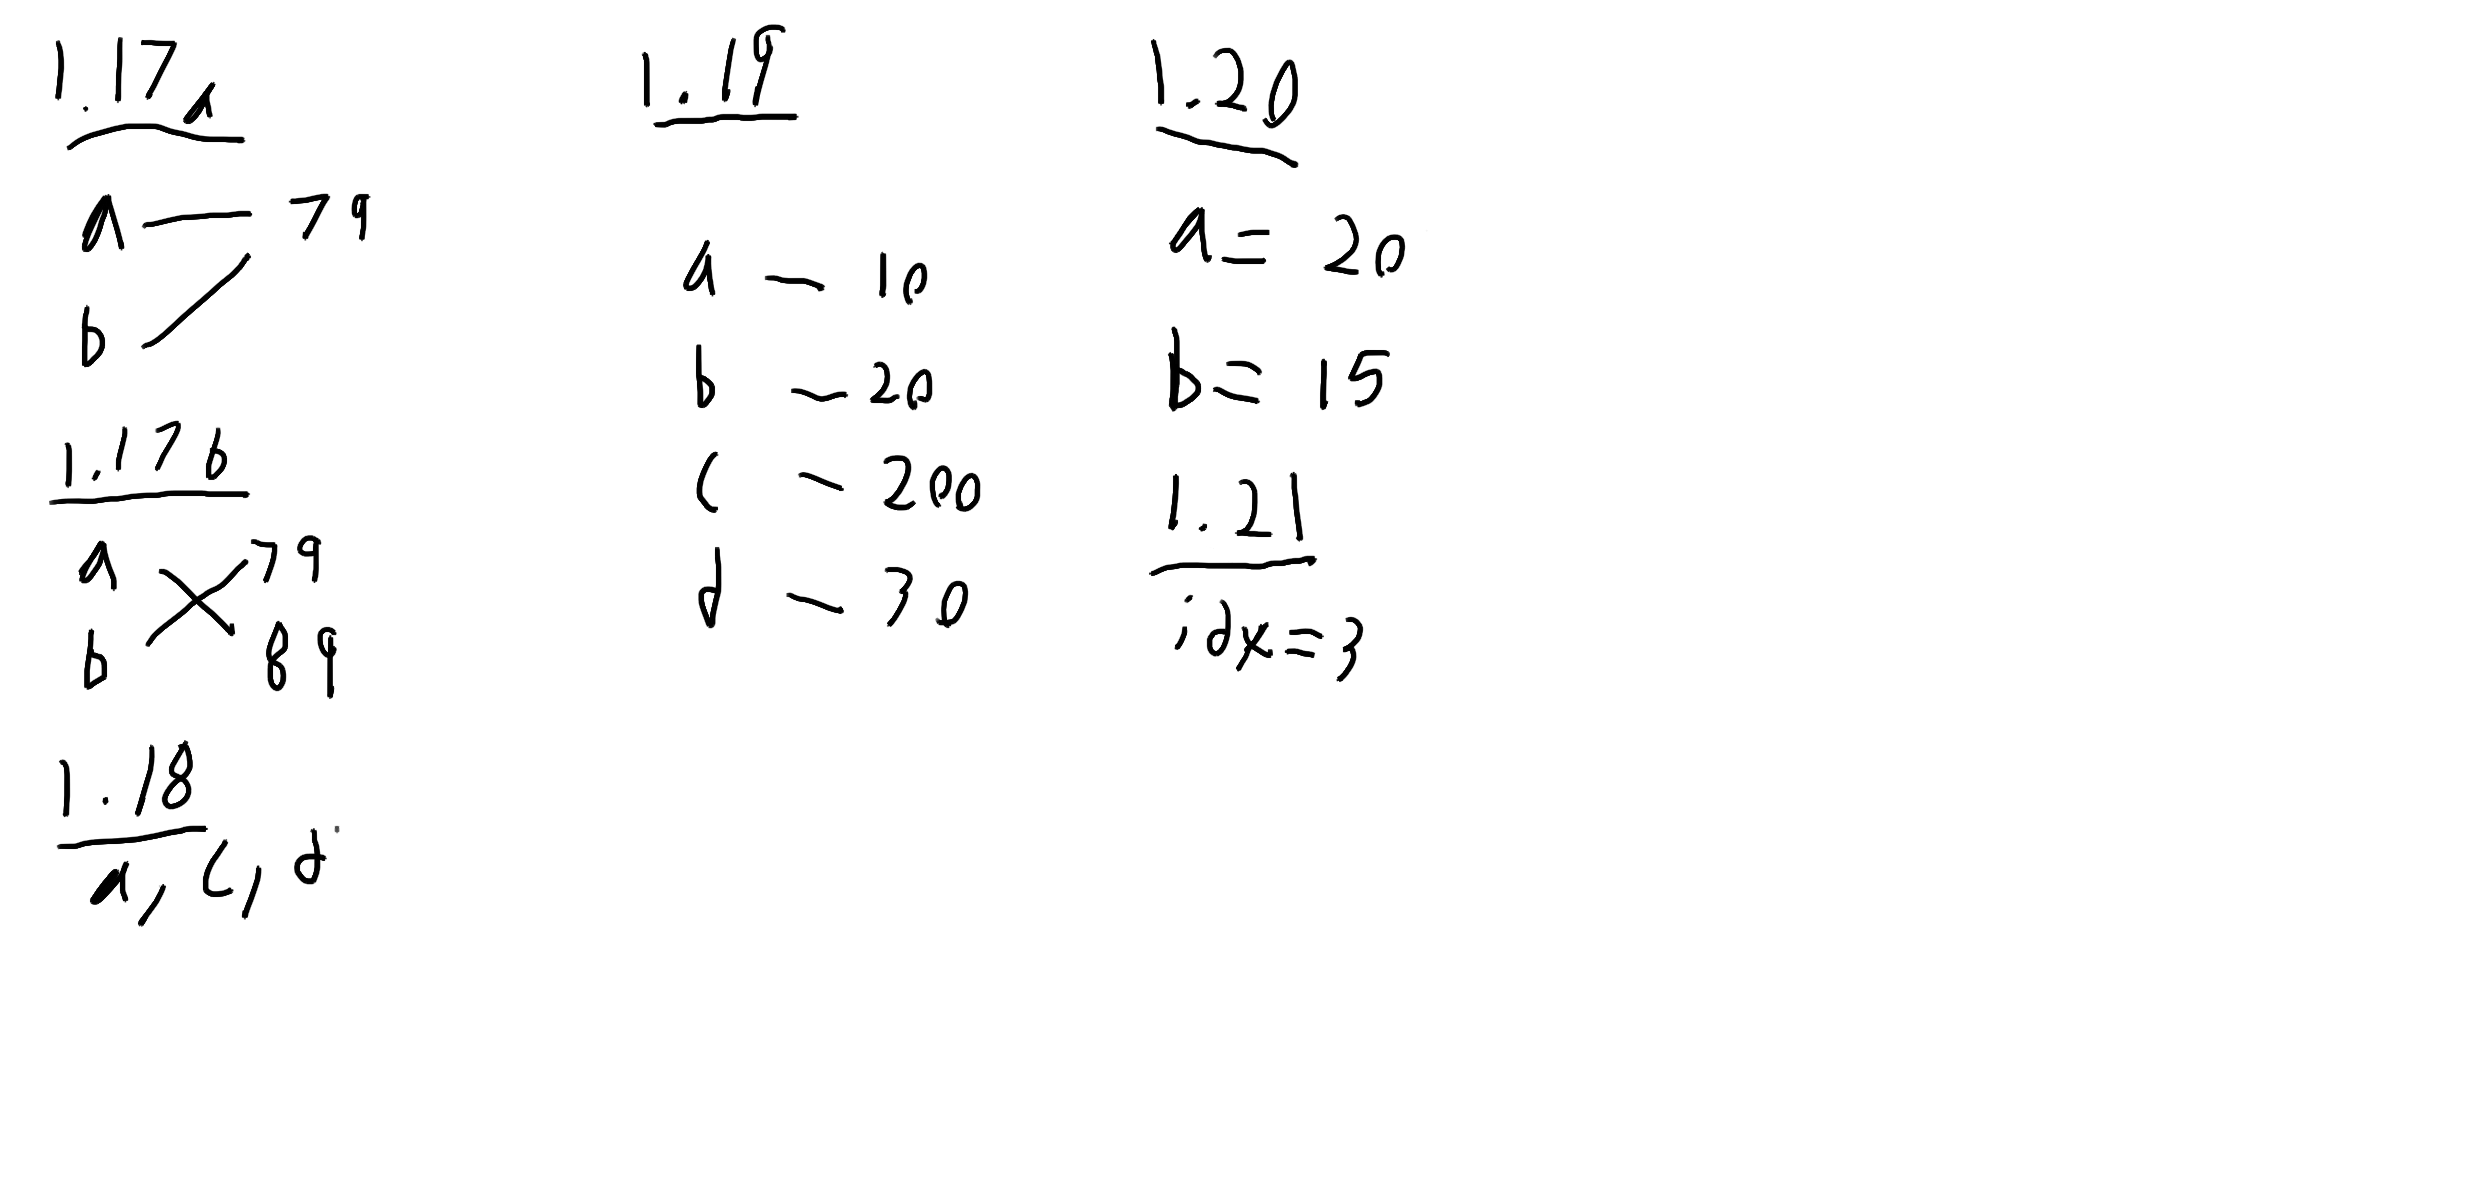 1.17a
a — 79
b
1.17b
a 79
b 89
1.18
a, c, d
1.19
a — 10
b — 20
c — 200
d — 30
1.20
a = 20
b = 15
1.21
idx = 3